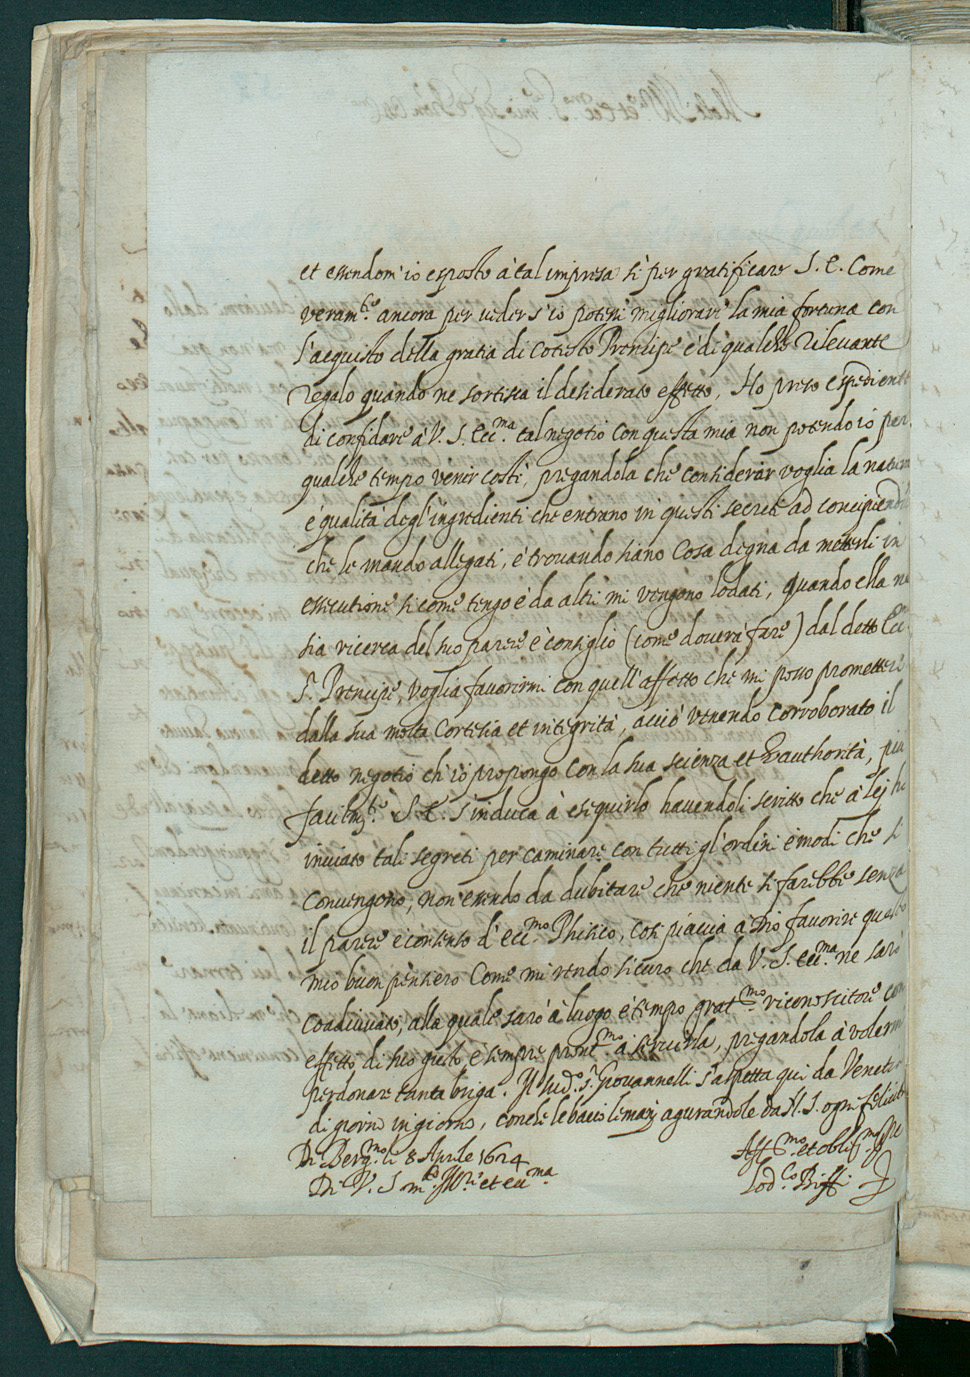 et essendom'io esposto à tal impresa sì per gratificare S. E. come
veram.te ancora per veder s'io potessi migliorare la mia fortuna con
l'acquisto della gratia di cotesto Prencipe e di qualche rilevante
regalo quando ne sortisca il desiderato effetto, Ho preso espediente
di confidare à V. S. Ecc.ma tal negotio con questa mia non potendo io per
qualche tempo venir costì, pregandola che considerar voglia la natura
e qualità degl'ingredienti che entrano in questi secreti ad concipiendum
che le mando allegati, e trovando siano cosa degna da metterli in
essecutione si come tengo e da altri mi vengono lodati, quando ella ne
sia ricerca del suo parere e consiglio (come dovera fare) dal detto Ecc.mo
S.r Prencipe, voglia favorirmi con quell'affetto che mi posso promettere
dalla sua molta cortesia et integrità, acciò venendo corroborato il
detto negotio ch'io propongo con la sua scienza et authorità, più
facilm.te S. E. s'induca à esequirlo havendoli scritto che à lej hò
inviato tali segreti per caminare con tutti gl'ordini e modi che si
convengono, non essendo da dubitare che niente si farebbe senza
il parere e consenso d'Ecc.mo Phisico, così piaccia a Dio favorire questo
mio buon pensiero come mi rendo sicuro che da V. S. Ecc.ma ne sarò
coadiuvato, alla quale sarò à luogo e tempo grat.mo riconoscitore con
effetto di suo gusto e sempre pront.mo à servirla, pregandola à volermi
perdonare tanta briga. Il Sud.o S.r Giovannelli s'aspetta qui da Venetia
di giorno in giorno, con che le bacio le manj agurandole da N. S. ogni felicità
Di Berg.mo li 8 Aprile 1624
Di V. S. m.to Ill.re et ecc.ma
Aff.mo et oblig.mo Ser.re
Lod.co Biffi